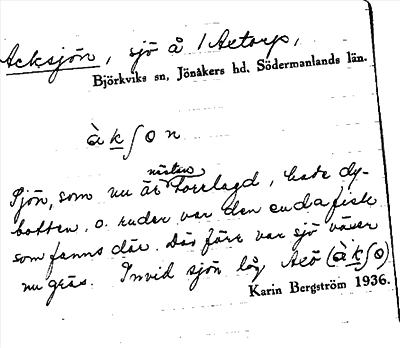 Acksjön, sjö å 1 Aetorp,
Björkviks sn, Jönåkers hd, Södermanlands län.
àkʃon
nästan
Sjön, som nu är torrlagd, hade dy-
botten, o. rudor var den enda fisk
som fanns där. Där förr var sjö växer
nu gräs. Invid sjön låg Aeö (àkʃo)
Karin Bergström 1936.